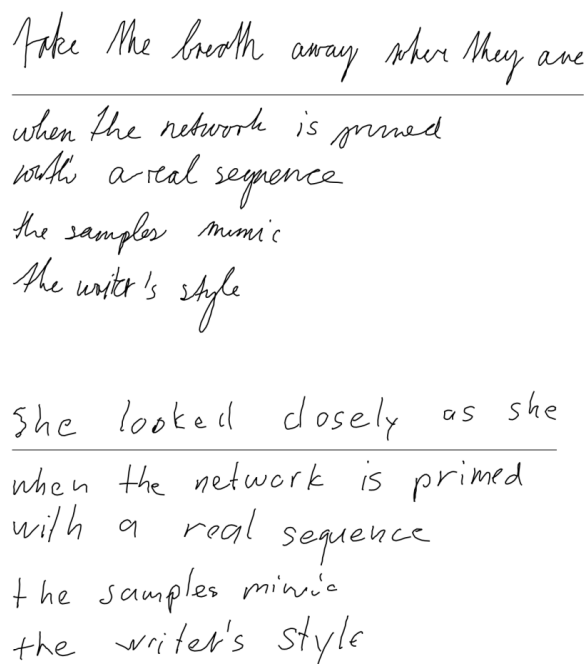 take the breath away when they are
when the network is primed
with a real sequence
the samples mimic
the writer's style
She looked closely as she
when the network is primed
with a real sequence
the samples mimic
the writer's style